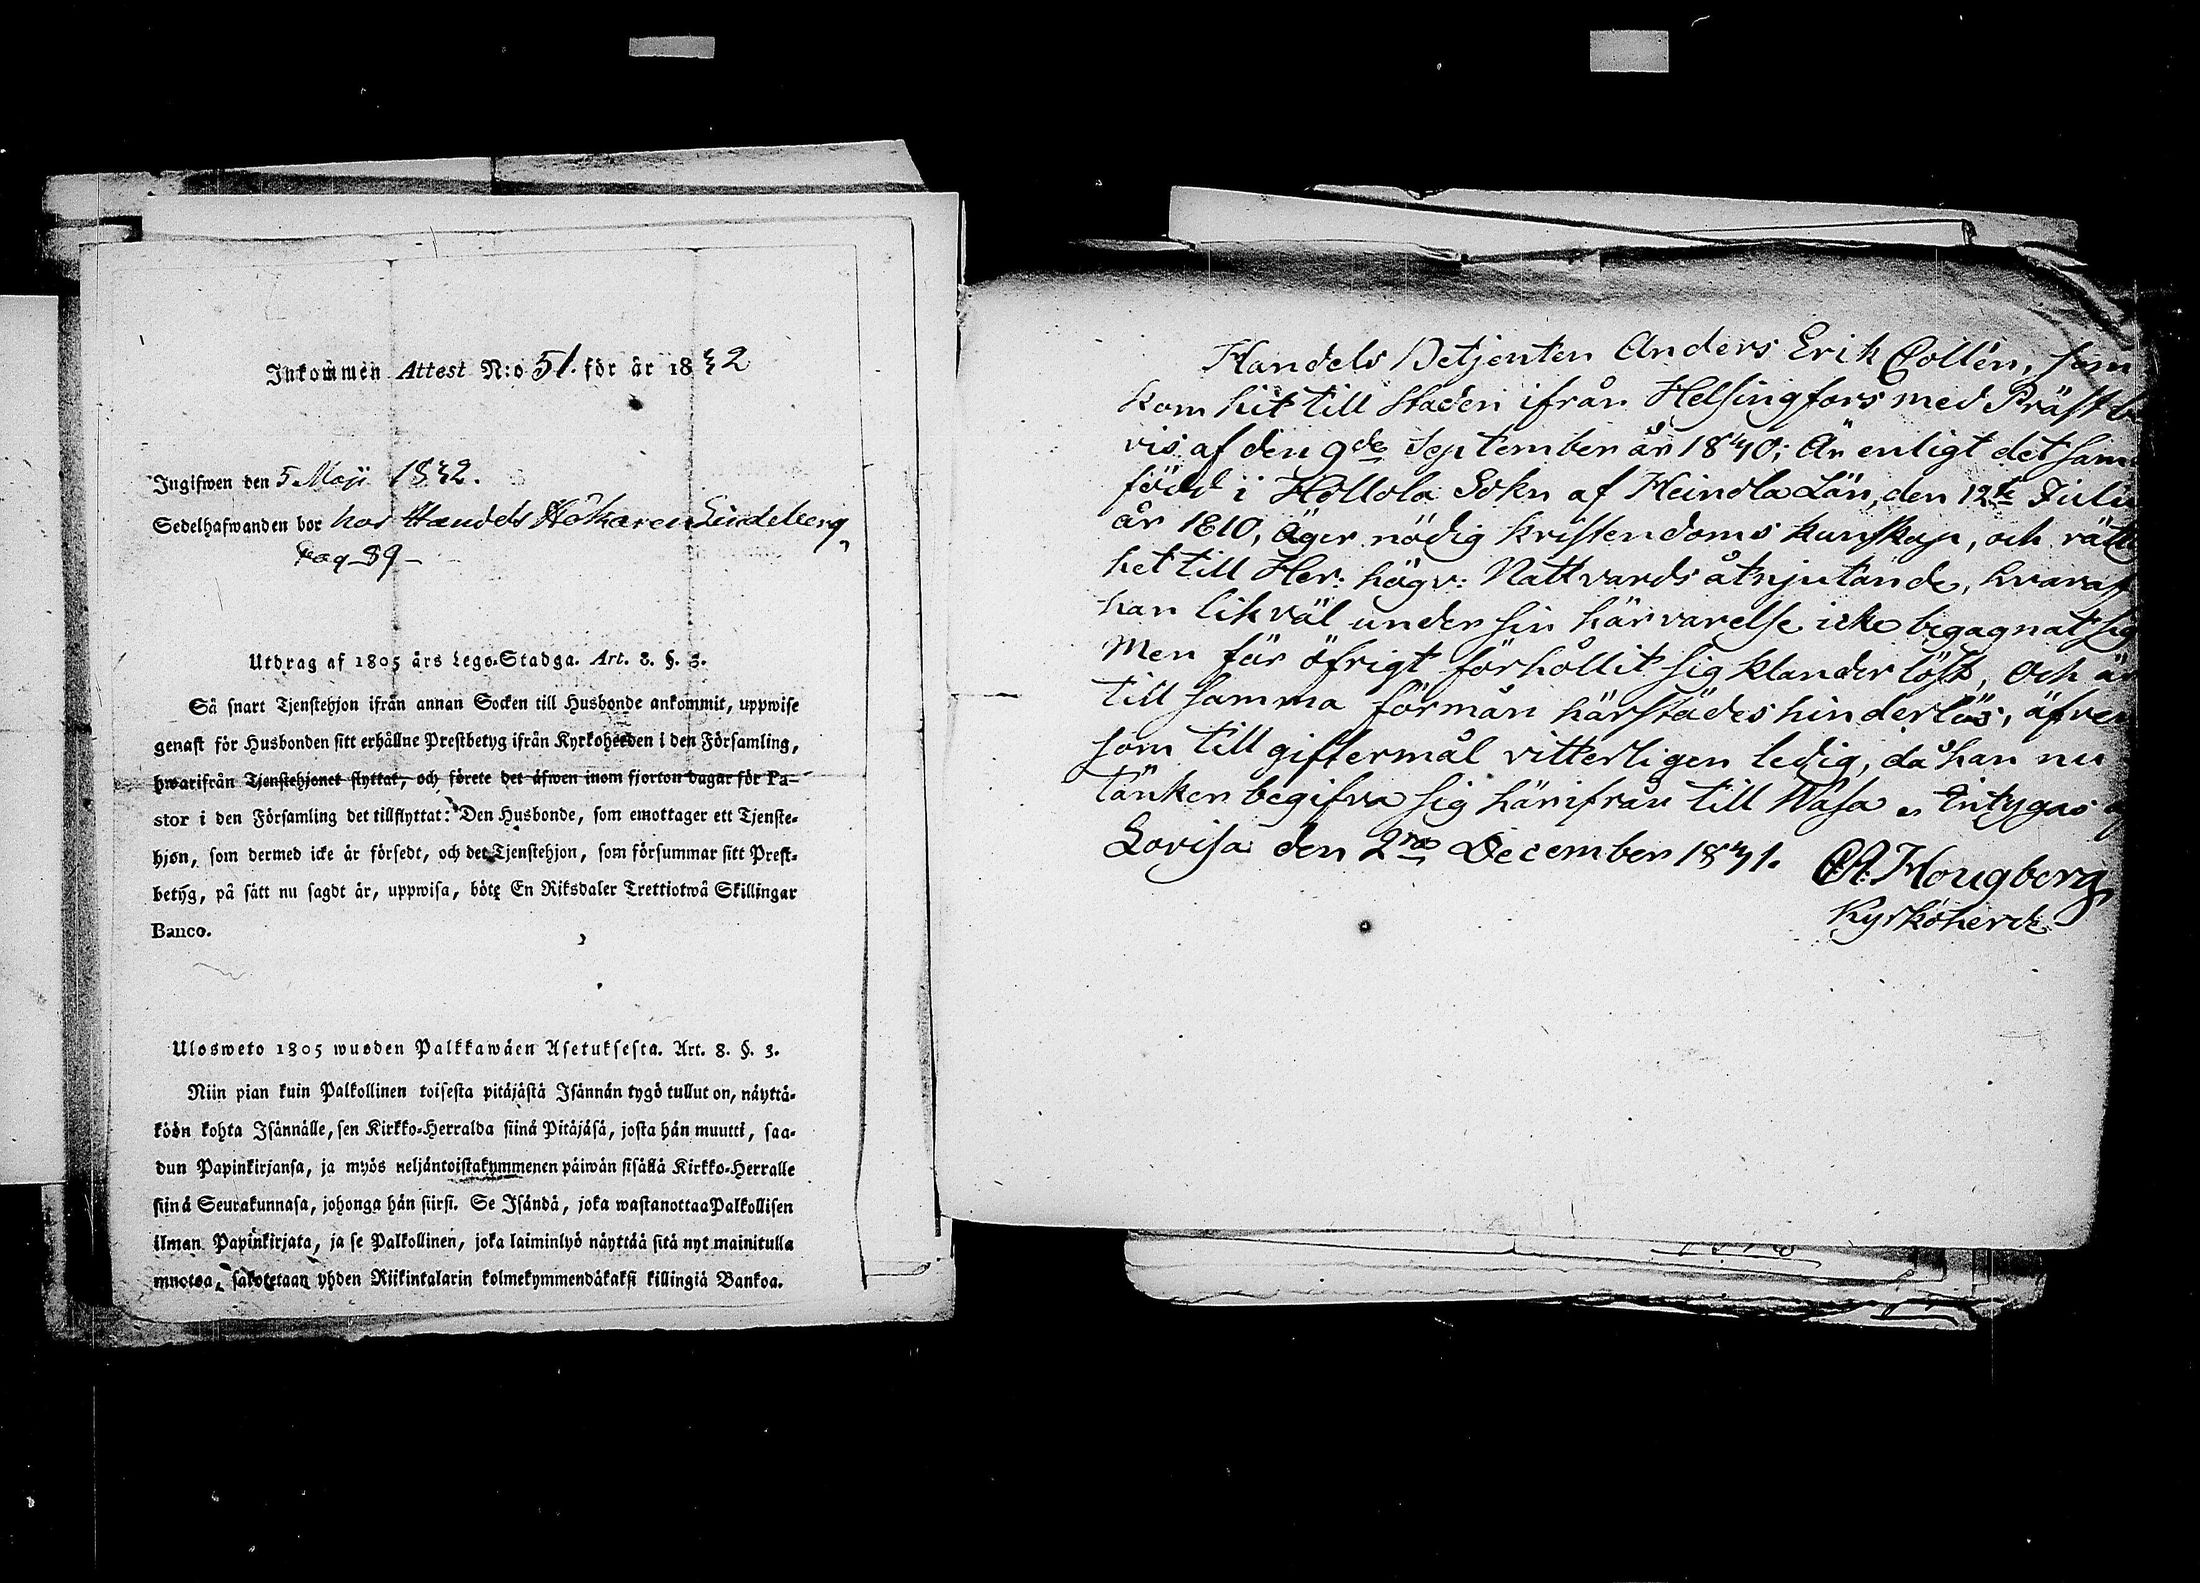 Inkommen Attest N:o 51. för år 1842
Ingifwen den 5 Maji 1842.
Sedelhafwanden bor hos Handels Hökaren Lindeberg,
pag 89
Utdrag af 1805 års Lego-Stadga. Art. 8. §. 3.
Så snart Tjenstehjon ifrån annan Socken till Husbonde ankommit, uppwise
genast för Husbonden sitt erhållne Prestbetyg ifrån Kyrkoherden i den Församling,
hwarifrån Tjenstehjonet flyttat, och förete det äfwen inom fjorton dagar för Pa-
stor i den Församling det tillflyttat: Den Husbonde, som emottager ett Tjenste-
hjon, som dermed icke är försedt, och det Tjenstehjon, som försummar sitt Prest-
betyg, på sätt nu sagdt är, uppwisa, böte En Riksdaler Trettiotwå Skillingar
Banco.
Ulosweto 1805 wuoden Palkkawäen Asetuksesta. Art. 8. §. 3.
Niin pian kuin Palkollinen toisesta pitäjästä Isännän tygö tullut on, näyttä-
köön kohta Isännälle, sen Kirkko-Herralda siinä Pitäjäsä, josta hän muutti, saa-
dun Papinkirjansa, ja myös neljäntoistakymmenen päiwän sisällä Kirkko-Herralle
siinä Seurakunnasa, johonga hän siirsi. Se Isändä, joka wastanottaa Palkollisen
ilman Papinkirjata, ja se Palkollinen, joka laiminlyö näyttää sitä nyt mainitulla
muotoa, sakotetaan yhden Riikintalarin kolmekymmendäkaksi killingiä Bankoa.
Handels Betjenten Anders Erik Collén, som
kom hit till staden ifrån Helsingfors med Prästbe
vis af den 9de September år 1840; Är enligt det sam
född i Hollola Sokn af Heinola Län, den 12te Julii
år 1810, Äger nödig kristendoms kunskap, och rätt
het till Her: högv: Nattvards åtnjutande, hvaraf
han likväl under sin härvarelse icke begagnat sig
Men för öfrigt förhållit sig klanderlöst, Och är
till samma förmån härstädes hinderlös, äfven
som till giftermål vitterligen ledig, då han nu
tänker begifva sig härifrån till Wasa Intygas
Lovisa den 2ra December 1841.
Hougberg
Kyrkoherde